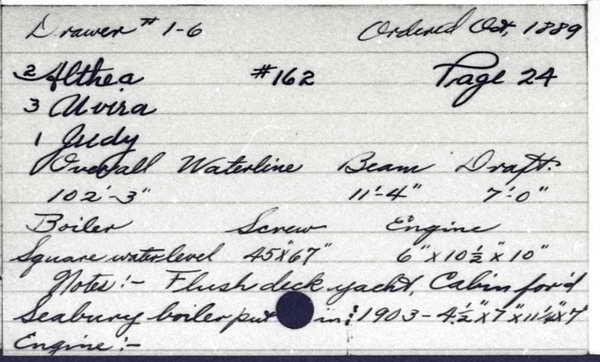 Drawer # 1-6 Ordered Oct, 1889
2 Althea #162 Page 24
3 Alvira
1 Judy
Overall Waterline Beam Draft:
102'-3" 11'-4" 7'-0"
Boiler Screw Engine
Square water level 45"x67" 6"x10½"x10"
Notes:- Flush deck yacht, Cabin for'd
Seabury boiler put in; 1903 - 4½"x7"x11¼"x7
Engine:-